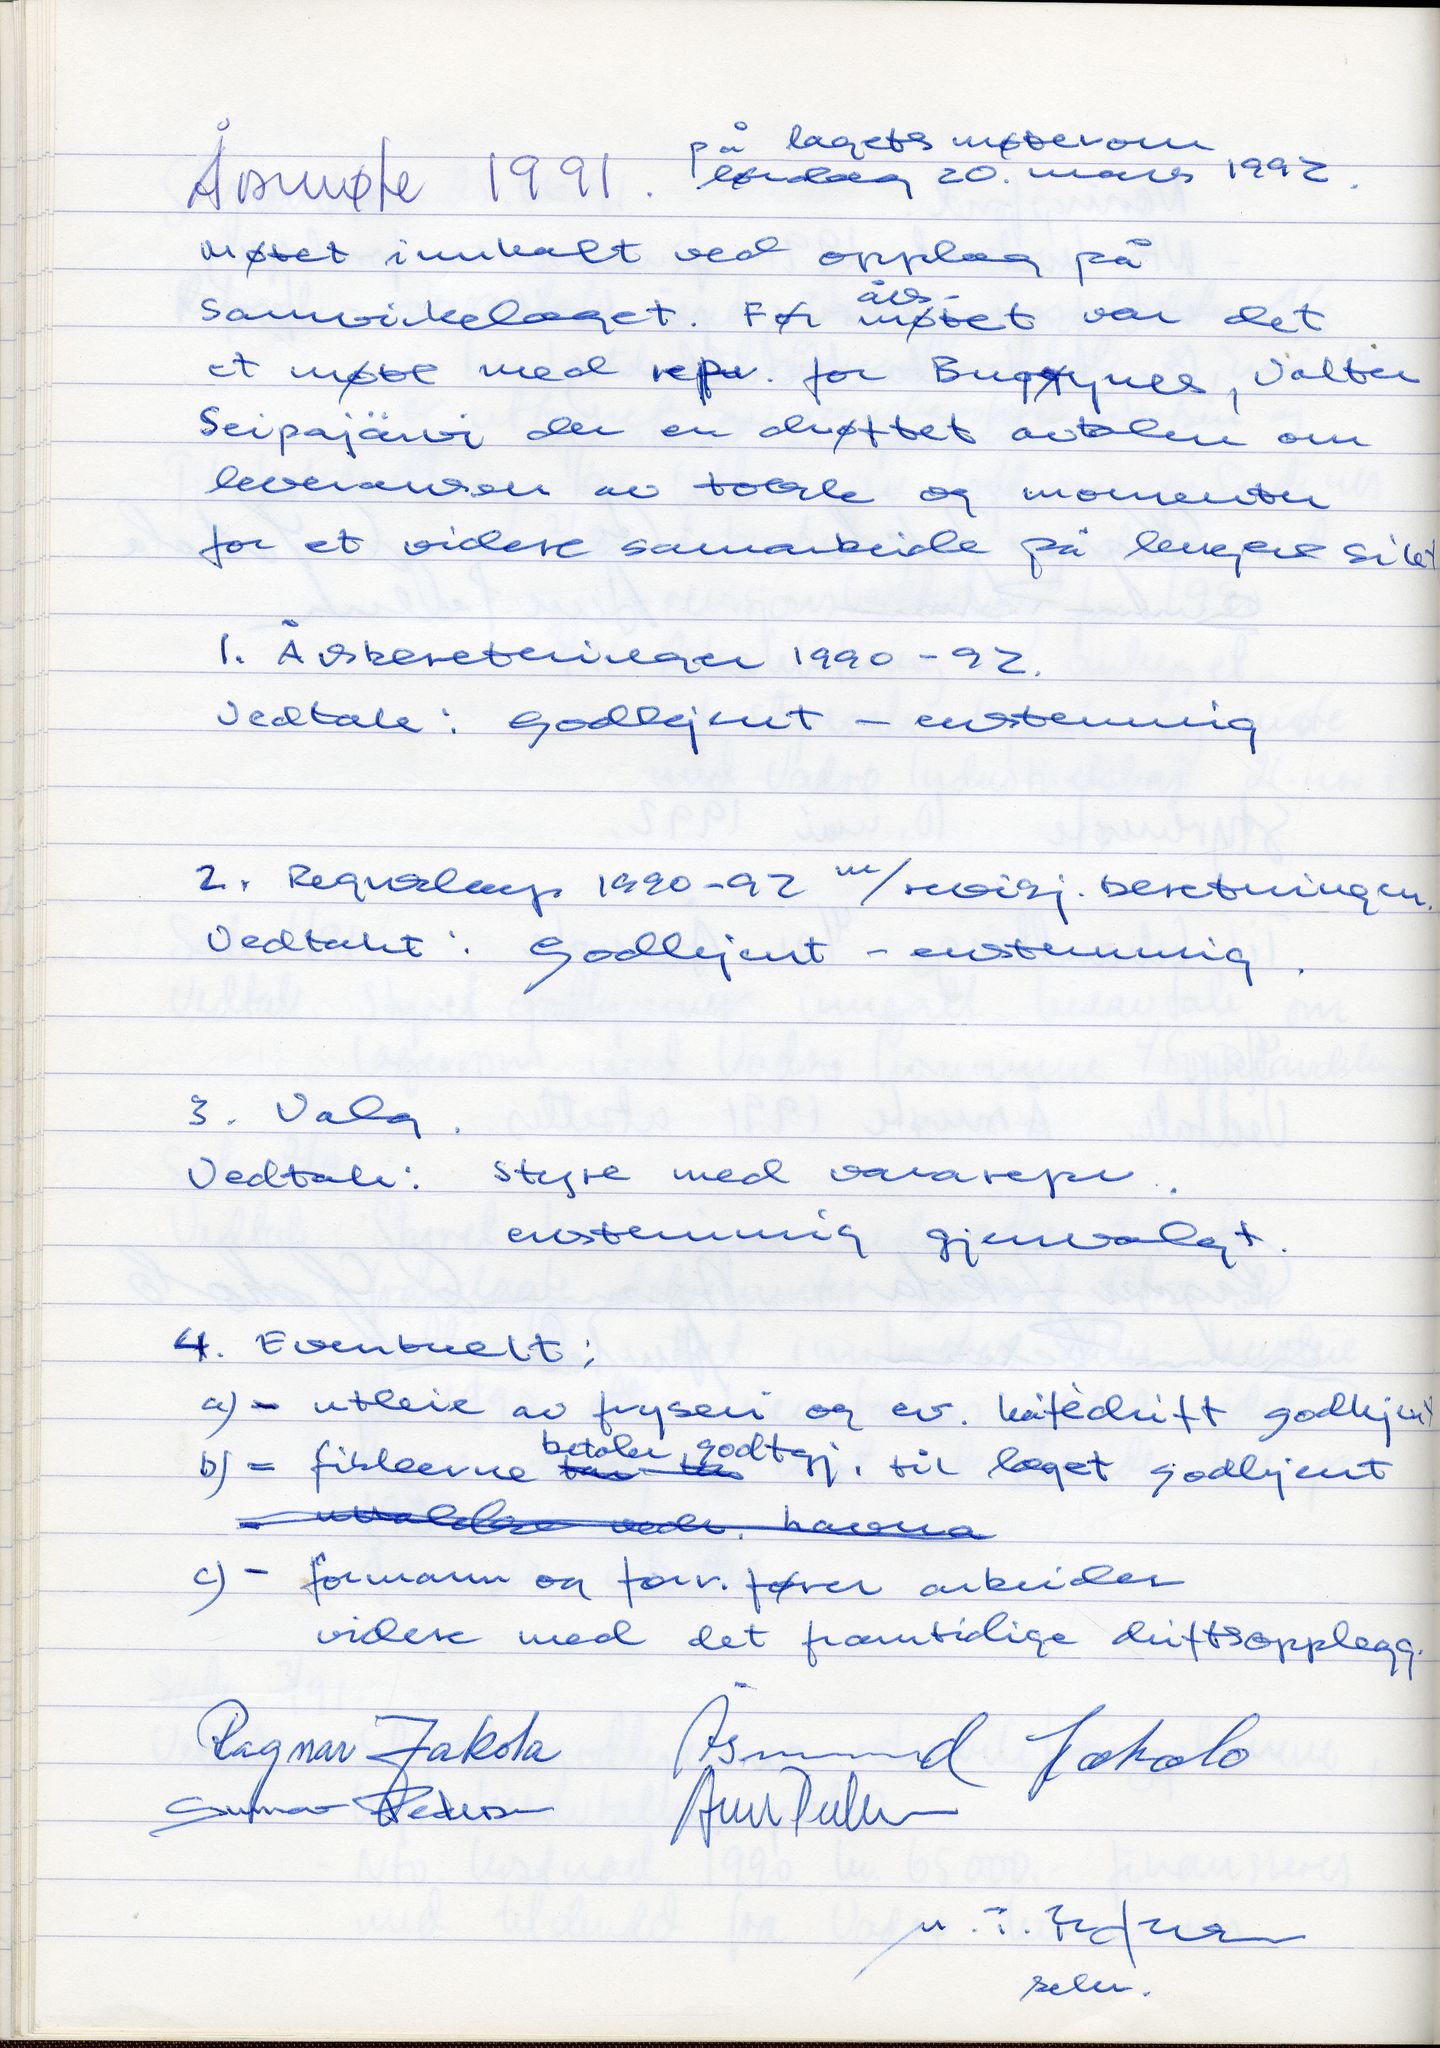 på lagets møterom
Årsmøte 1991. lørdag 20. mars 1992.
Møtet innkalt ved opplag på
Samvirkelaget. Før års-møtet var det
et møte med repr. for Bugøynes, Valter
Seipajärvi der en drøftet avtalen om
leveransen av torsk og momenter
for et videre samarbeide på lengre sikt
1. Årsberetninger 1990-92.
Vedtak: Godkjent - enstemmig
2. Regnskap 1990-92 m/revisj. beretningen.
Vedtakt: Godkjent - enstemmig.
3. Valg.
Vedtak: Styre med vararepr.
enstemmig gjenvalgt.
4. Eventuelt:
a) - utleie av fryseri og ev. kafédrift godkjent
b) = fiskerne betaler godtgj. til laget godkjent
- uttalelse vedr. havna
c) - formann og forr.fører arbeider
videre med det framtidige driftsopplegg.
Ragnar Jakola Åsmund Jakola
Gunnar Pedersen
sekr.